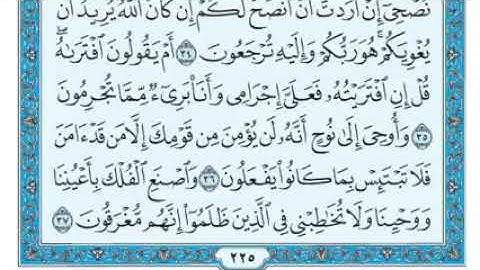 نُصْحِىٓ إِنْ أَرَدتُّ أَنْ أَنصَحَ لَكُمْ إِن كَانَ ٱللَّهُ يُرِيدُ أَن
يُغْوِيَكُمْ ۚ هُوَ رَبُّكُمْ وَإِلَيْهِ تُرْجَعُونَ ٣٤ أَمْ يَقُولُونَ ٱفْتَرَىٰهُ ۖ
قُلْ إِنِ ٱفْتَرَيْتُهُۥ فَعَلَىَّ إِجْرَامِى وَأَنَا۠ بَرِىٓءٌ مِّمَّا تُجْرِمُونَ
٣٥ وَأُوحِىَ إِلَىٰ نُوحٍ أَنَّهُۥ لَن يُؤْمِنَ مِن قَوْمِكَ إِلَّا مَن قَدْ ءَامَنَ
فَلَا تَبْتَئِسْ بِمَا كَانُوا۟ يَفْعَلُونَ ٣٦ وَٱصْنَعِ ٱلْفُلْكَ بِأَعْيُنِنَا
وَوَحْيِنَا وَلَا تُخَٰطِبْنِى فِى ٱلَّذِينَ ظَلَمُوٓا۟ ۚ إِنَّهُم مُّغْرَقُونَ ٣٧
٢٢٥